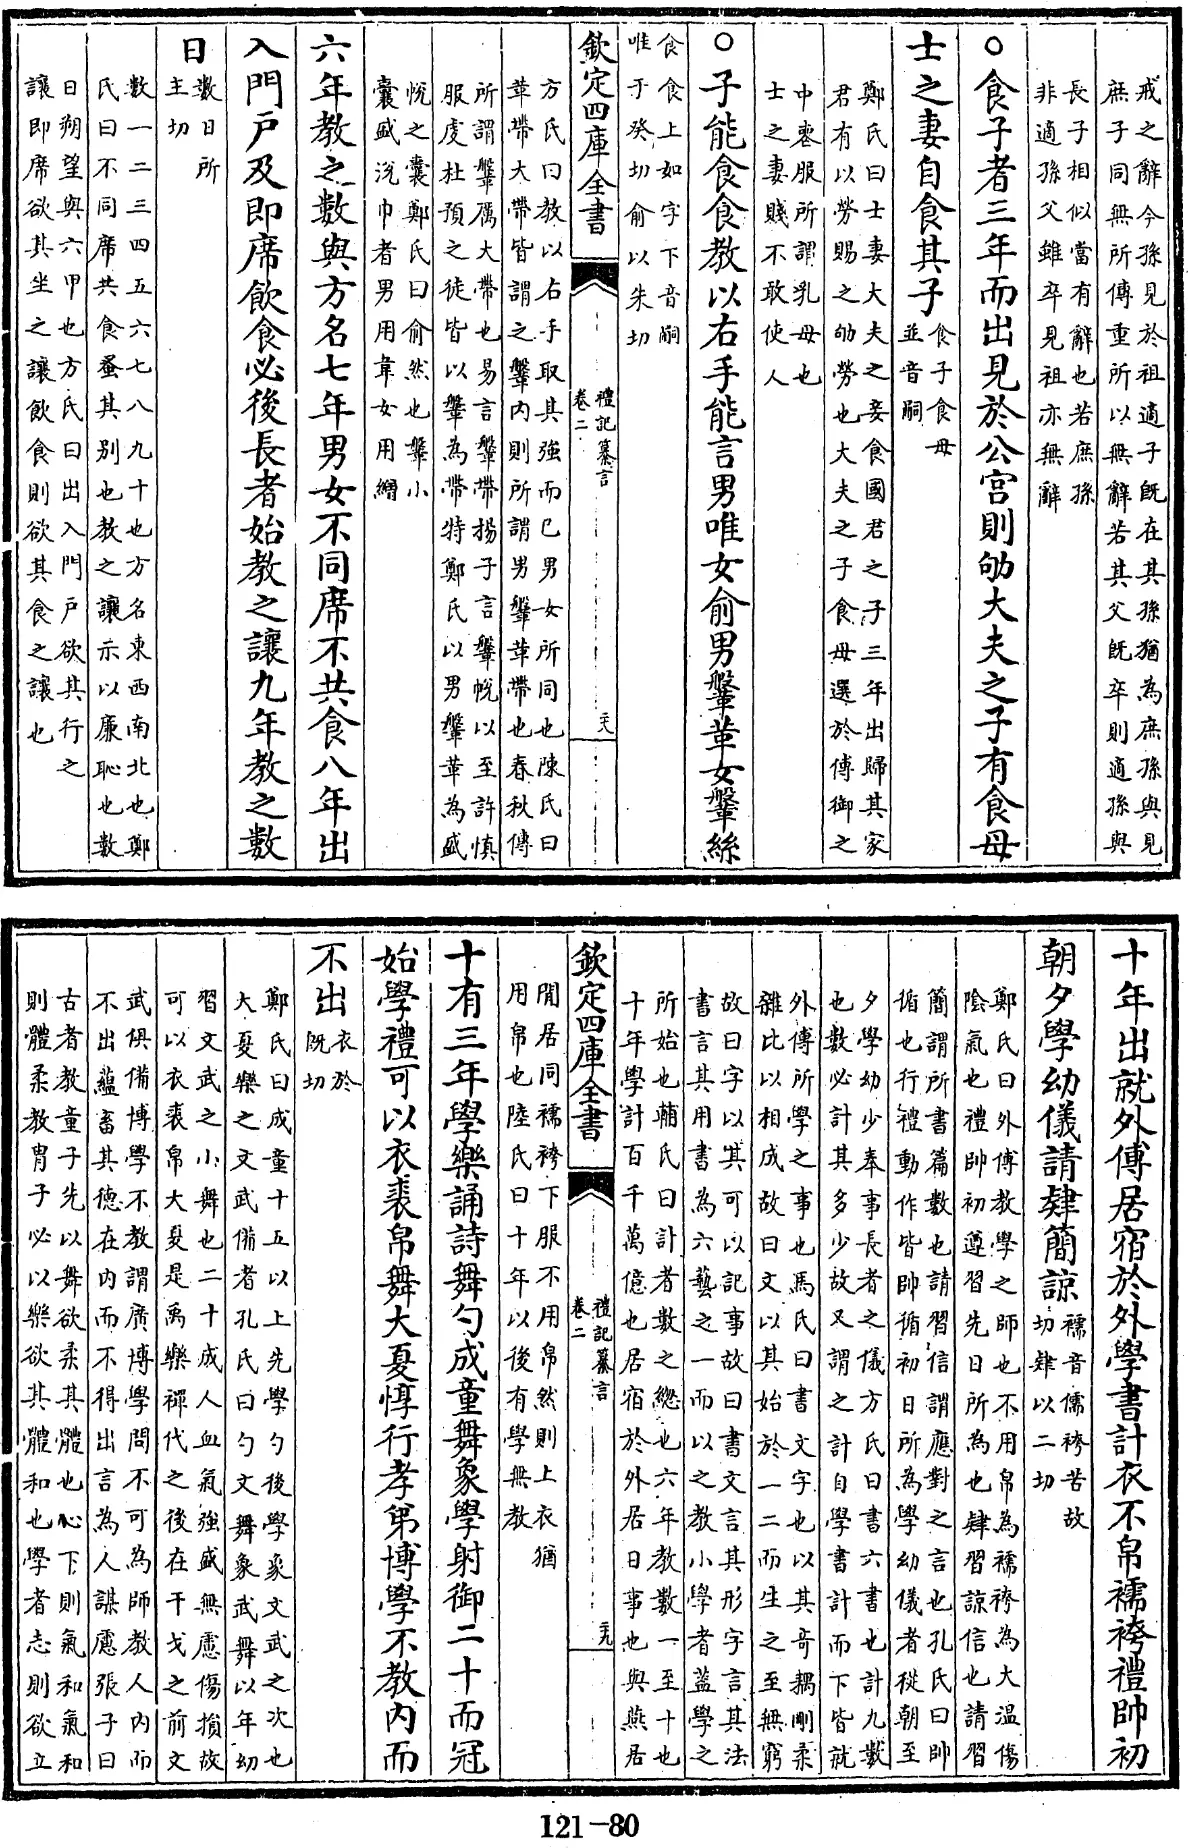 戒之辭今孫見於祖適子既在其孫猶為庶孫與見
庶子同無所傳重所以無辭若其父既卒則適孫與
長子相似當有辭也若庶孫
非適孫父雖卒見祖亦無辭
○食子者三年而出見於公宫則劬大夫之子有食母
士之妻自食其子
食子食母
並音嗣
鄭氏曰士妻大夫之妾食國君之子三年出歸其家
君有以勞賜之劬勞也大夫之子食母選於傅御之
中喪服所謂乳母也
士之妻賤不敢使人
○子能食食教以右手能言男唯女俞男鞶革女鞶絲
食食上如字下音嗣
唯于癸切俞以朱切
欽定四庫全書
禮記纂言
卷二
二十八
方氏曰教以右手取其強而已男女所同也陳氏曰
革帶大帶皆謂之鞶内則所謂男鞶革帶也春秋傳
所謂鞶厲大帶也易言鞶帶揚子言鞶帨以至許慎
服虔杜預之徒皆以鞶為帶特鄭氏以男鞶革為盛
帨之囊鄭氏曰俞然也鞶小
囊盛帨巾者男用韋女用繒
六年教之數與方名七年男女不同席不共食八年出
入門戸及即席飲食必後長者始教之讓九年教之數
日
數日所
主切
數一二三四五六七八九十也方名東西南北也鄭
氏曰不同席共食蚤其别也教之讓示以廉恥也數
日朔望與六甲也方氏曰出入門戸欲其行之
讓即席欲其坐之讓飲食則欲其食之讓也
十年出就外傅居宿於外學書計衣不帛襦袴禮帥初
朝夕學幼儀請肄簡諒
襦音儒袴苦故
切肄以二切
鄭氏曰外傅教學之師也不用帛為襦袴為大温傷
陰氣也禮帥初遵習先日所為也肄習諒信也請習
簡謂所書篇數也請習信謂應對之言也孔氏曰帥
循也行禮動作皆帥循初日所為學幼儀者從朝至
夕學幼少奉事長者之儀方氏曰書六書也計九數
也數必計其多少故又謂之計自學書計而下皆就
外傅所學之事也馬氏曰書文字也以其竒耦剛柔
雜比以相成故曰文以其始於一二而生之至無窮
故曰字以其可以記事故曰書文言其形字言其法
書言其用書為六藝之一而以之教小學者蓋學之
所始也輔氏曰計者數之總也六年教數一至十也
十年學計百千萬億也居宿於外居日事也與燕居
欽定四庫全書
禮記纂言
卷二
二十九
閒居同襦袴下服不用帛然則上衣猶
用帛也陸氏曰十年以後有學無教
十有三年學樂誦詩舞勺成童舞象學射御二十而冠
始學禮可以衣裘帛舞大夏惇行孝弟博學不教内而
不出
衣於
既切
鄭氏曰成童十五以上先學勺後學象文武之次也
大夏樂之文武備者孔氏曰勺文舞象武舞以年幼
習文武之小舞也二十成人血氣強盛無慮傷損故
可以衣裘帛大夏是禹樂禪代之後在干戈之前文
武俱備博學不教謂廣博學問不可為師教人内而
不出蘊畜其徳在内而不得出言為人謀慮張子曰
古者教童子先以舞欲柔其體也心下則氣和氣和
則體柔教胄子必以樂欲其體和也學者志則欲立
121-80